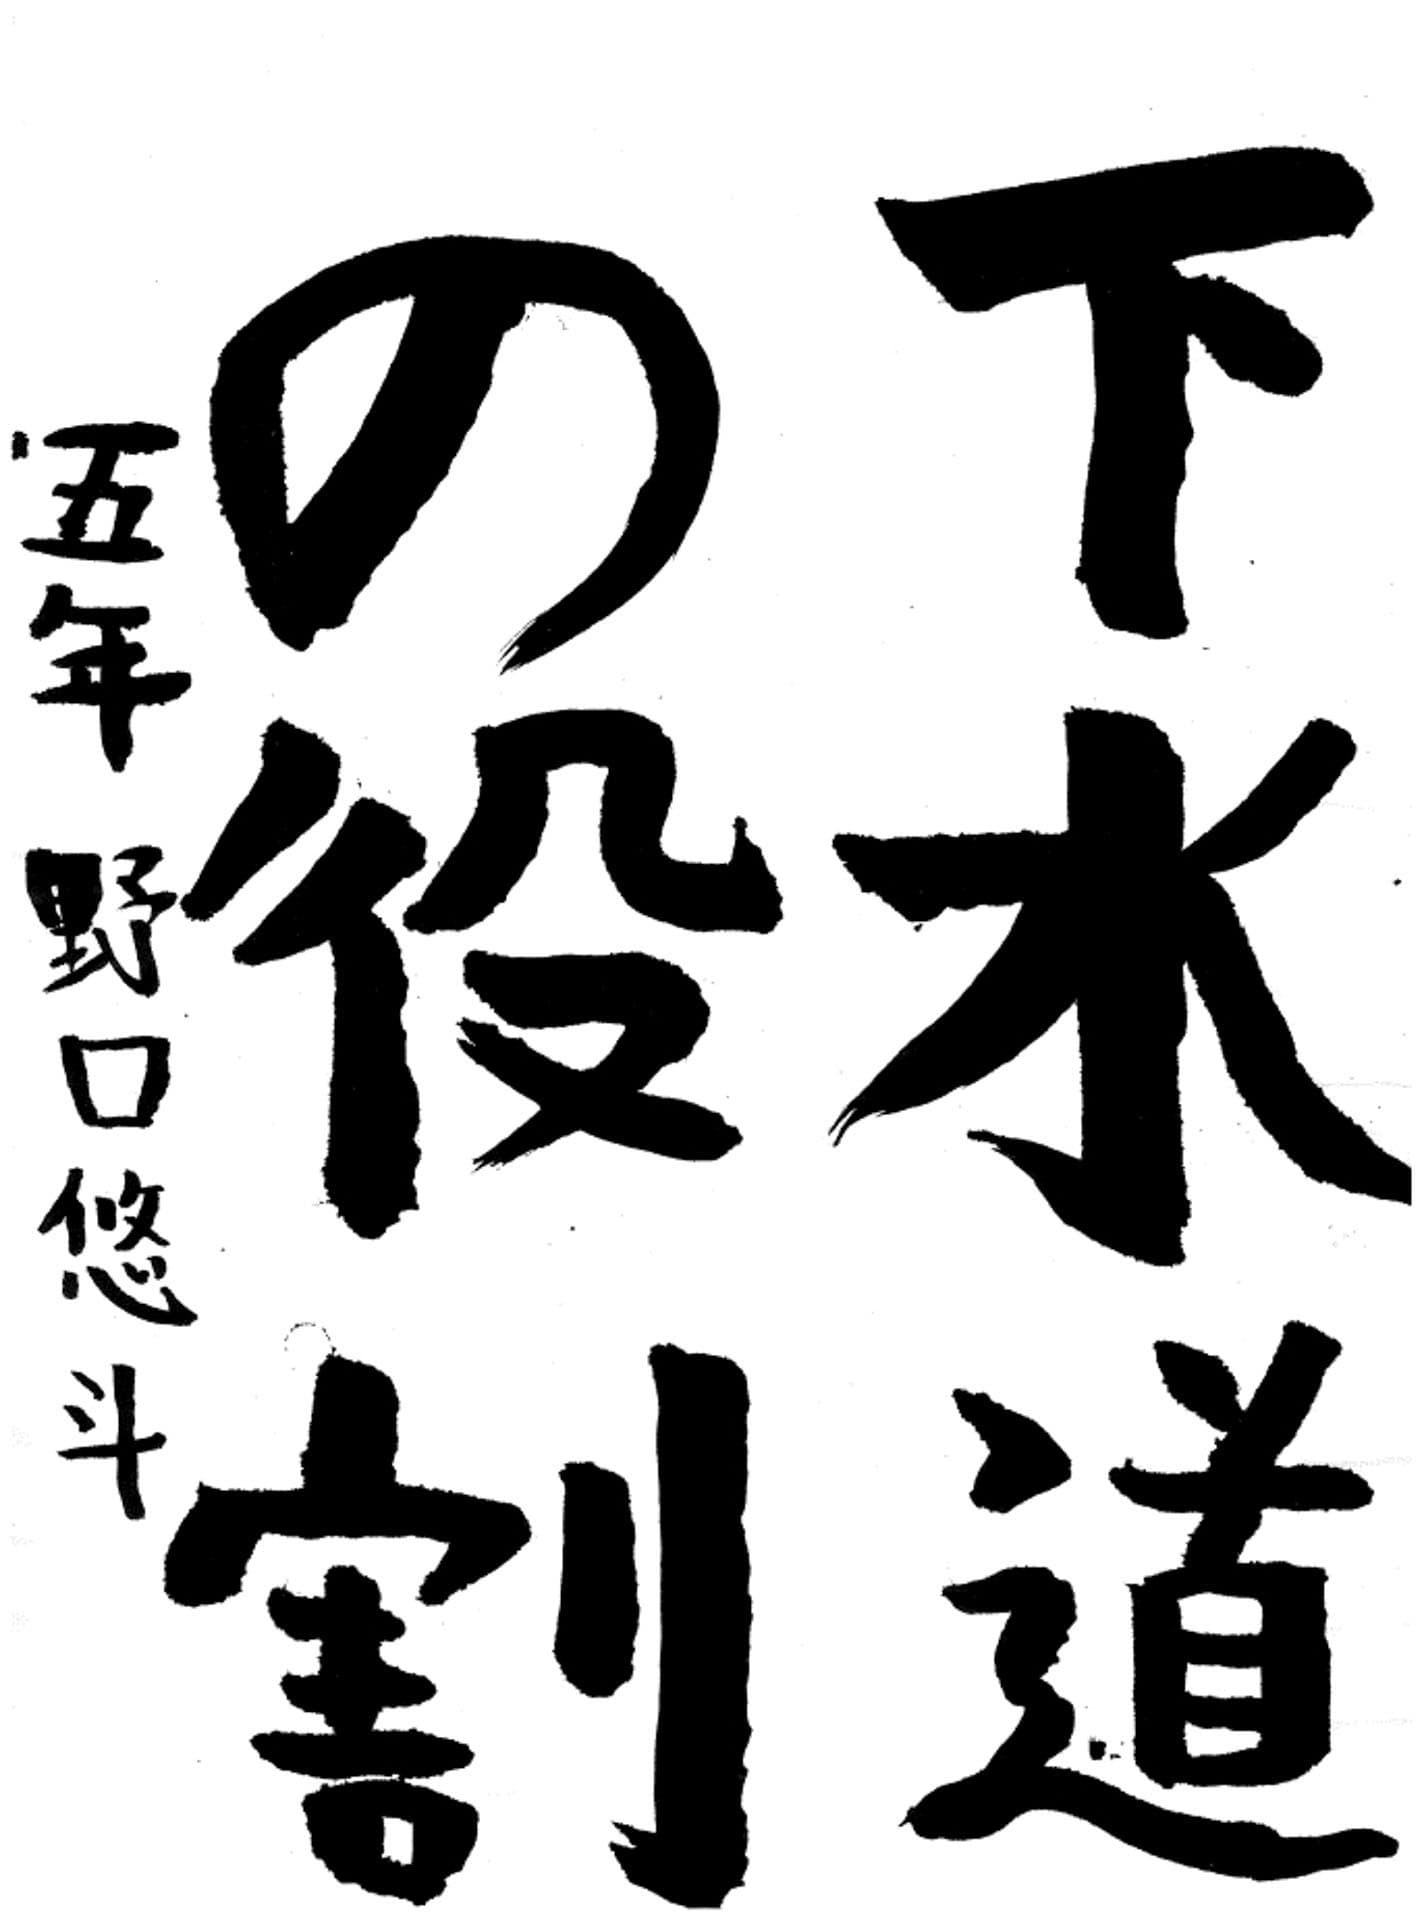 下水道
の役割
五年 野口悠斗